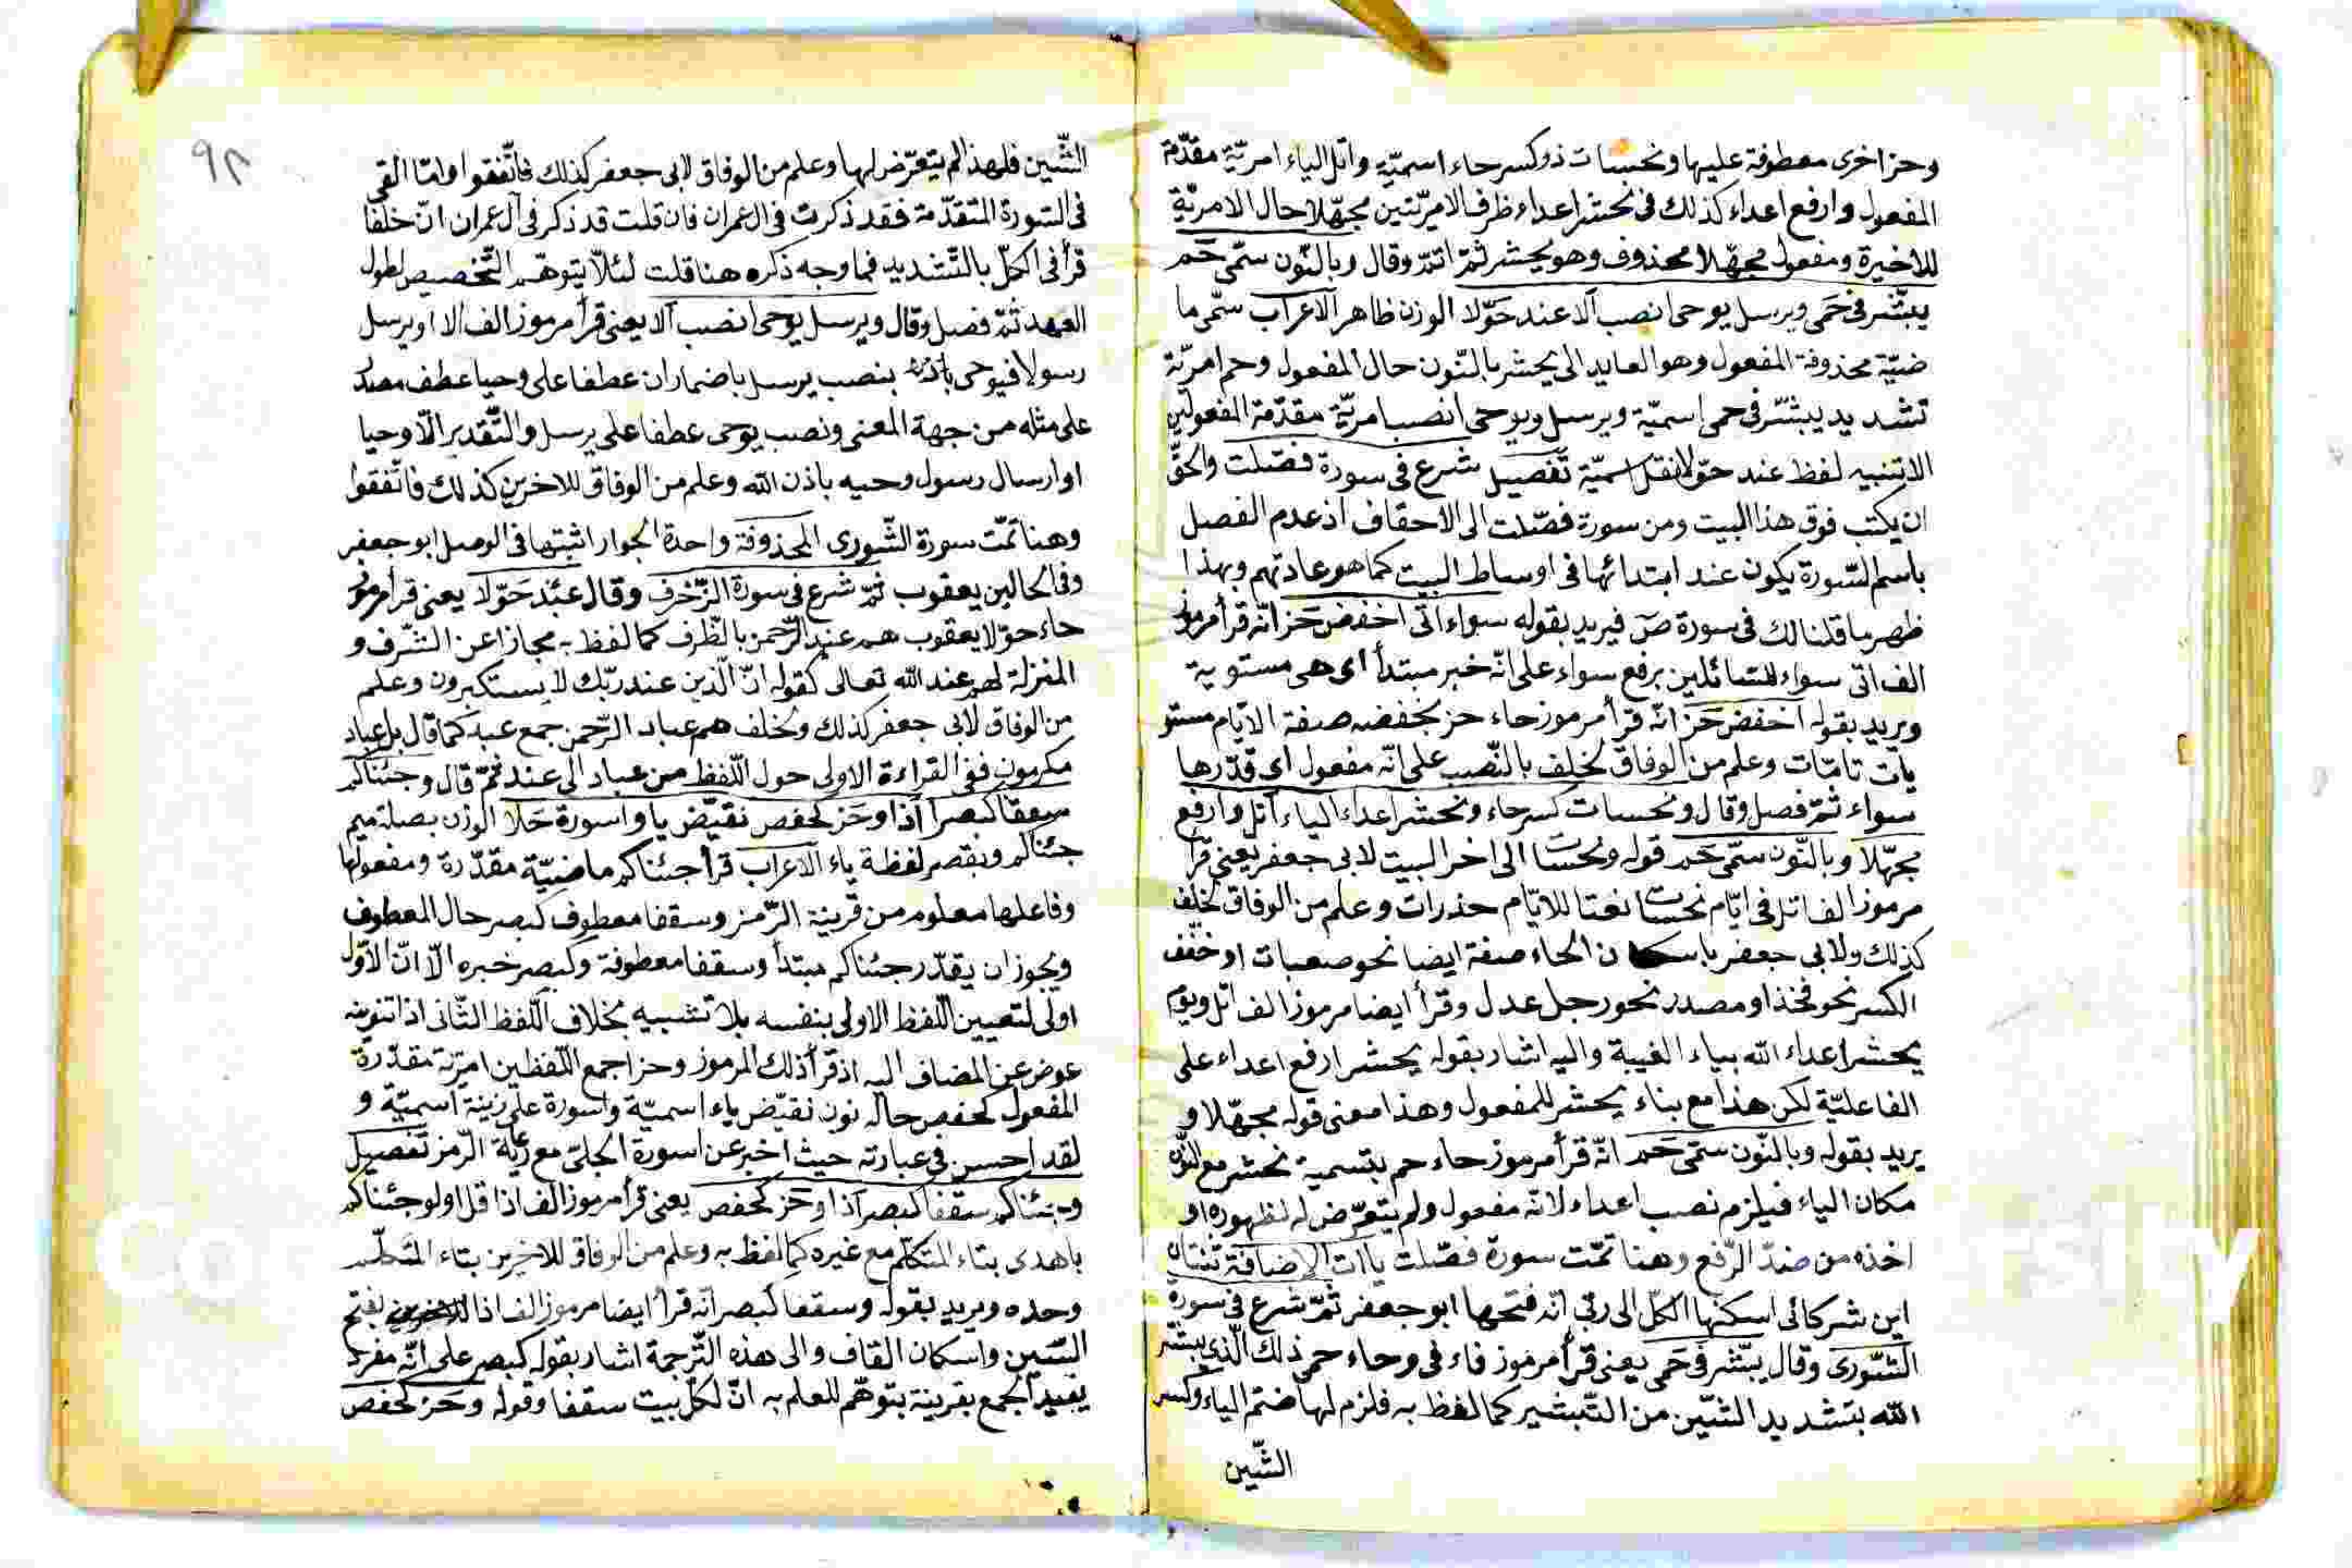 وحز اخرى معطوفة عليها ونحسات ذو كسر حاء اسميّة واتل الياء امريّة مقدّم
المفعول وارفع اعداء كذلك فى نحشر اعداء ظرف الامريّتين مجهّلا حال الامريّة
للاخيرة ومفعول مجهّلا محذوف وهو يحشر ثمّ اتمّ وقال وبالنّون سمّى حَم
يبشّر فى حَمى ويرسل يوحى انصب آلا عند حَوّلا الوزن ظاهر الاعراب سمّى ما
ضيّة محذوفة المفعول وهو العايد الى يحشر بالنّون حال المفعول وحم امريّة
تشديد يبشّر فى حمى اسميّة ويرسل ويوحى انصب امريّة مقدّمة المفعولين
الا تنبيه لفظ عند حوّلا نقل اسميّة تفصيل شرع فى سورة فصّلت والحقّ
ان يكتب فوق هذا البيت ومن سورة فصّلت الى الاحقاف اذ عدم الفصل
باسم السّورة يكون عند ابتدائها فى اوساط البيت كما هو عادتهم وبهذا
ظهر ما قلنا لك فى سورة صۤ فيريد بقوله سواء اتى اخفض حَز انّه قرأ مرموز
الف اتى سواء للسّائلين برفع سواء على انّه خبر مبتدأ اى هى مستوية
ويريد بقوله اخفض حَز انّه قرأ مرموز حاء حز بخفضه صفة الايّام مستو
يات تامّات وعلم من الوفاق لخلف بالنّصب على انّه مفعول اى قدّرها
سواء ثمّ فصل وقال ونحسات كسر حاء ونحشر اعداء الياء اتل وارفع
مجهّلا وبالنّون سمّى حَم قوله ونحسات الى اخر البيت لابى جعفر يعنى قرأ
مرموز الف اتل فى ايّام نحسات نعتا للايّام حذرات وعلم من الوفاق لخلف
كذلك ولابى جعفر باسكان الحاء صفة ايضا نحو صعبات او خفّف
الكسر نحو فخذ او مصدر نحو رجل عدل وقرأ ايضا مرموز الف اتل ويوم
يحشر اعداء الله بياء الغيبة واليه اشار بقوله يحشر ارفع اعداء على
الفاعليّة لكن هذا مع بناء يحشر للمفعول وهذا معنى قوله مجهّلا و
يريد بقوله وبالنّون سمّى حَم انّه قرأ مرموز حاء حم بتسمية نحشر مع النّون
مكان الياء فيلزم نصب اعداء لانّه مفعول ولم يتعرّض له لظهوره او
اخذه من ضدّ الرّفع وهنا تمّت سورة فصّلت ياات الاضافة ثنتان
اين شركائى اسكنها الكلّ الى ربّى انّه فتحها ابو جعفر ثمّ شرع فى سورة
الشّورى وقال يبشّر فى حَمى يعنى قرأ مرموز فاء فى وحاء حمى ذلك الّذى يبشّر
الله بتشديد الشّين من التّبشير كما لفظ به فلزم لها ضمّ الياء وكسر
الشّين
٩٨
الشّين فلهذا لم يتعرّض لها وعلم من الوفاق لابى جعفر كذلك فاتّفقوا وامّا الّتى
فى السّورة المتقدّمة فقد ذكرت فى ال عمران فان قلت قد ذكر فى آل عمران انّ خلفا
قرأ فى الكلّ بالتّشديد فما وجه ذكره هنا قلت لئلّا يتوهّم التّخصيص لطول
العهد ثمّ فصل وقال ويرسل يوحى انصب آلا يعنى قرأ مرموز الف الا او يرسل
رسولا فيوحى باذنه بنصب يرسل باضمار ان عطفا على وحيا عطف مصدر
على مثله من جهة المعنى ونصب يوحى عطفا على يرسل والتّقدير الّا وحيا
او ارسال رسول وحيه باذن الله وعلم من الوفاق للاخرين كذلك فاتّفقوا
وهنا تمّت سورة الشّورى المحذوفة واحدة الجوار اثبتها فى الوصل ابو جعفر
وفى الحالين يعقوب ثمّ شرع فى سورة الزّخرف وقال عند حَوّلا يعنى قرأ مرموز
حاء حوّلا يعقوب هم عند الرّحمن بالظّرف كما لفظ به مجازا عن الشّرف و
المنزلة لهم عند الله تعالى كقوله انّ الّذين عند ربّك لا يستكبرون وعلم
من الوفاق لابى جعفر كذلك ولخلف هم عباد الرّحمن جمع عبد كما قال بل عباد
مكرمون ففى القراءة الاولى حول اللّفظ من عباد الى عند ثمّ قال وجئناكم
سقفا كبصر اذا وحَز كحفص نقيّض يا واسورة حَلا الوزن بصلة ميم
جئناكم وبقصر لفظة ياء الاعراب قرأ جئناكم ماضيّة مقدّرة ومفعولها
وفاعلها معلوم من قرينة الرّمز وسقفا معطوف كبصر حال المعطوف
ويجوز ان يقدّر جئناكم مبتدأ وسقفا معطوفة وكبصر خبره الّا انّ الاوّل
اولى لتعيين اللّفظ الاولى بنفسه بلا تشبيه بخلاف اللّفظ الثّانى اذا تنوينه
عوض عن المضاف اليه اذ قرأ ذلك المرموز وحز اجمع اللّفظين امريّة مقدّرة
المفعول كحفص حاله نون نقيّض ياء اسميّة واسورة على زينة اسميّة و
لقد احسن فى عبارته حيث اخبر عن اسورة الحلىّ مع رعاية الرّمز تفصيل
وجئناكم سقفا كبصر آذا وحَز كحفص يعنى قرأ مرموز الف اذا قل اولو جئناكم
باهدى بتاء المتكلّم مع غيره كما لفظ به وعلم من الوفاق للاخرين بتاء المتكلّم
وحده ويريد بقوله وسقفا كبصر انّه قرأ ايضا مرموز الف اذا بفتح
السّين واسكان القاف والى هذه التّرجمة اشار بقوله كبصر على انّه مفرد
يفيد الجمع بقرينة بتوهّم للعلم به انّ لكلّ بيت سقفا وقوله وحَز كحفص